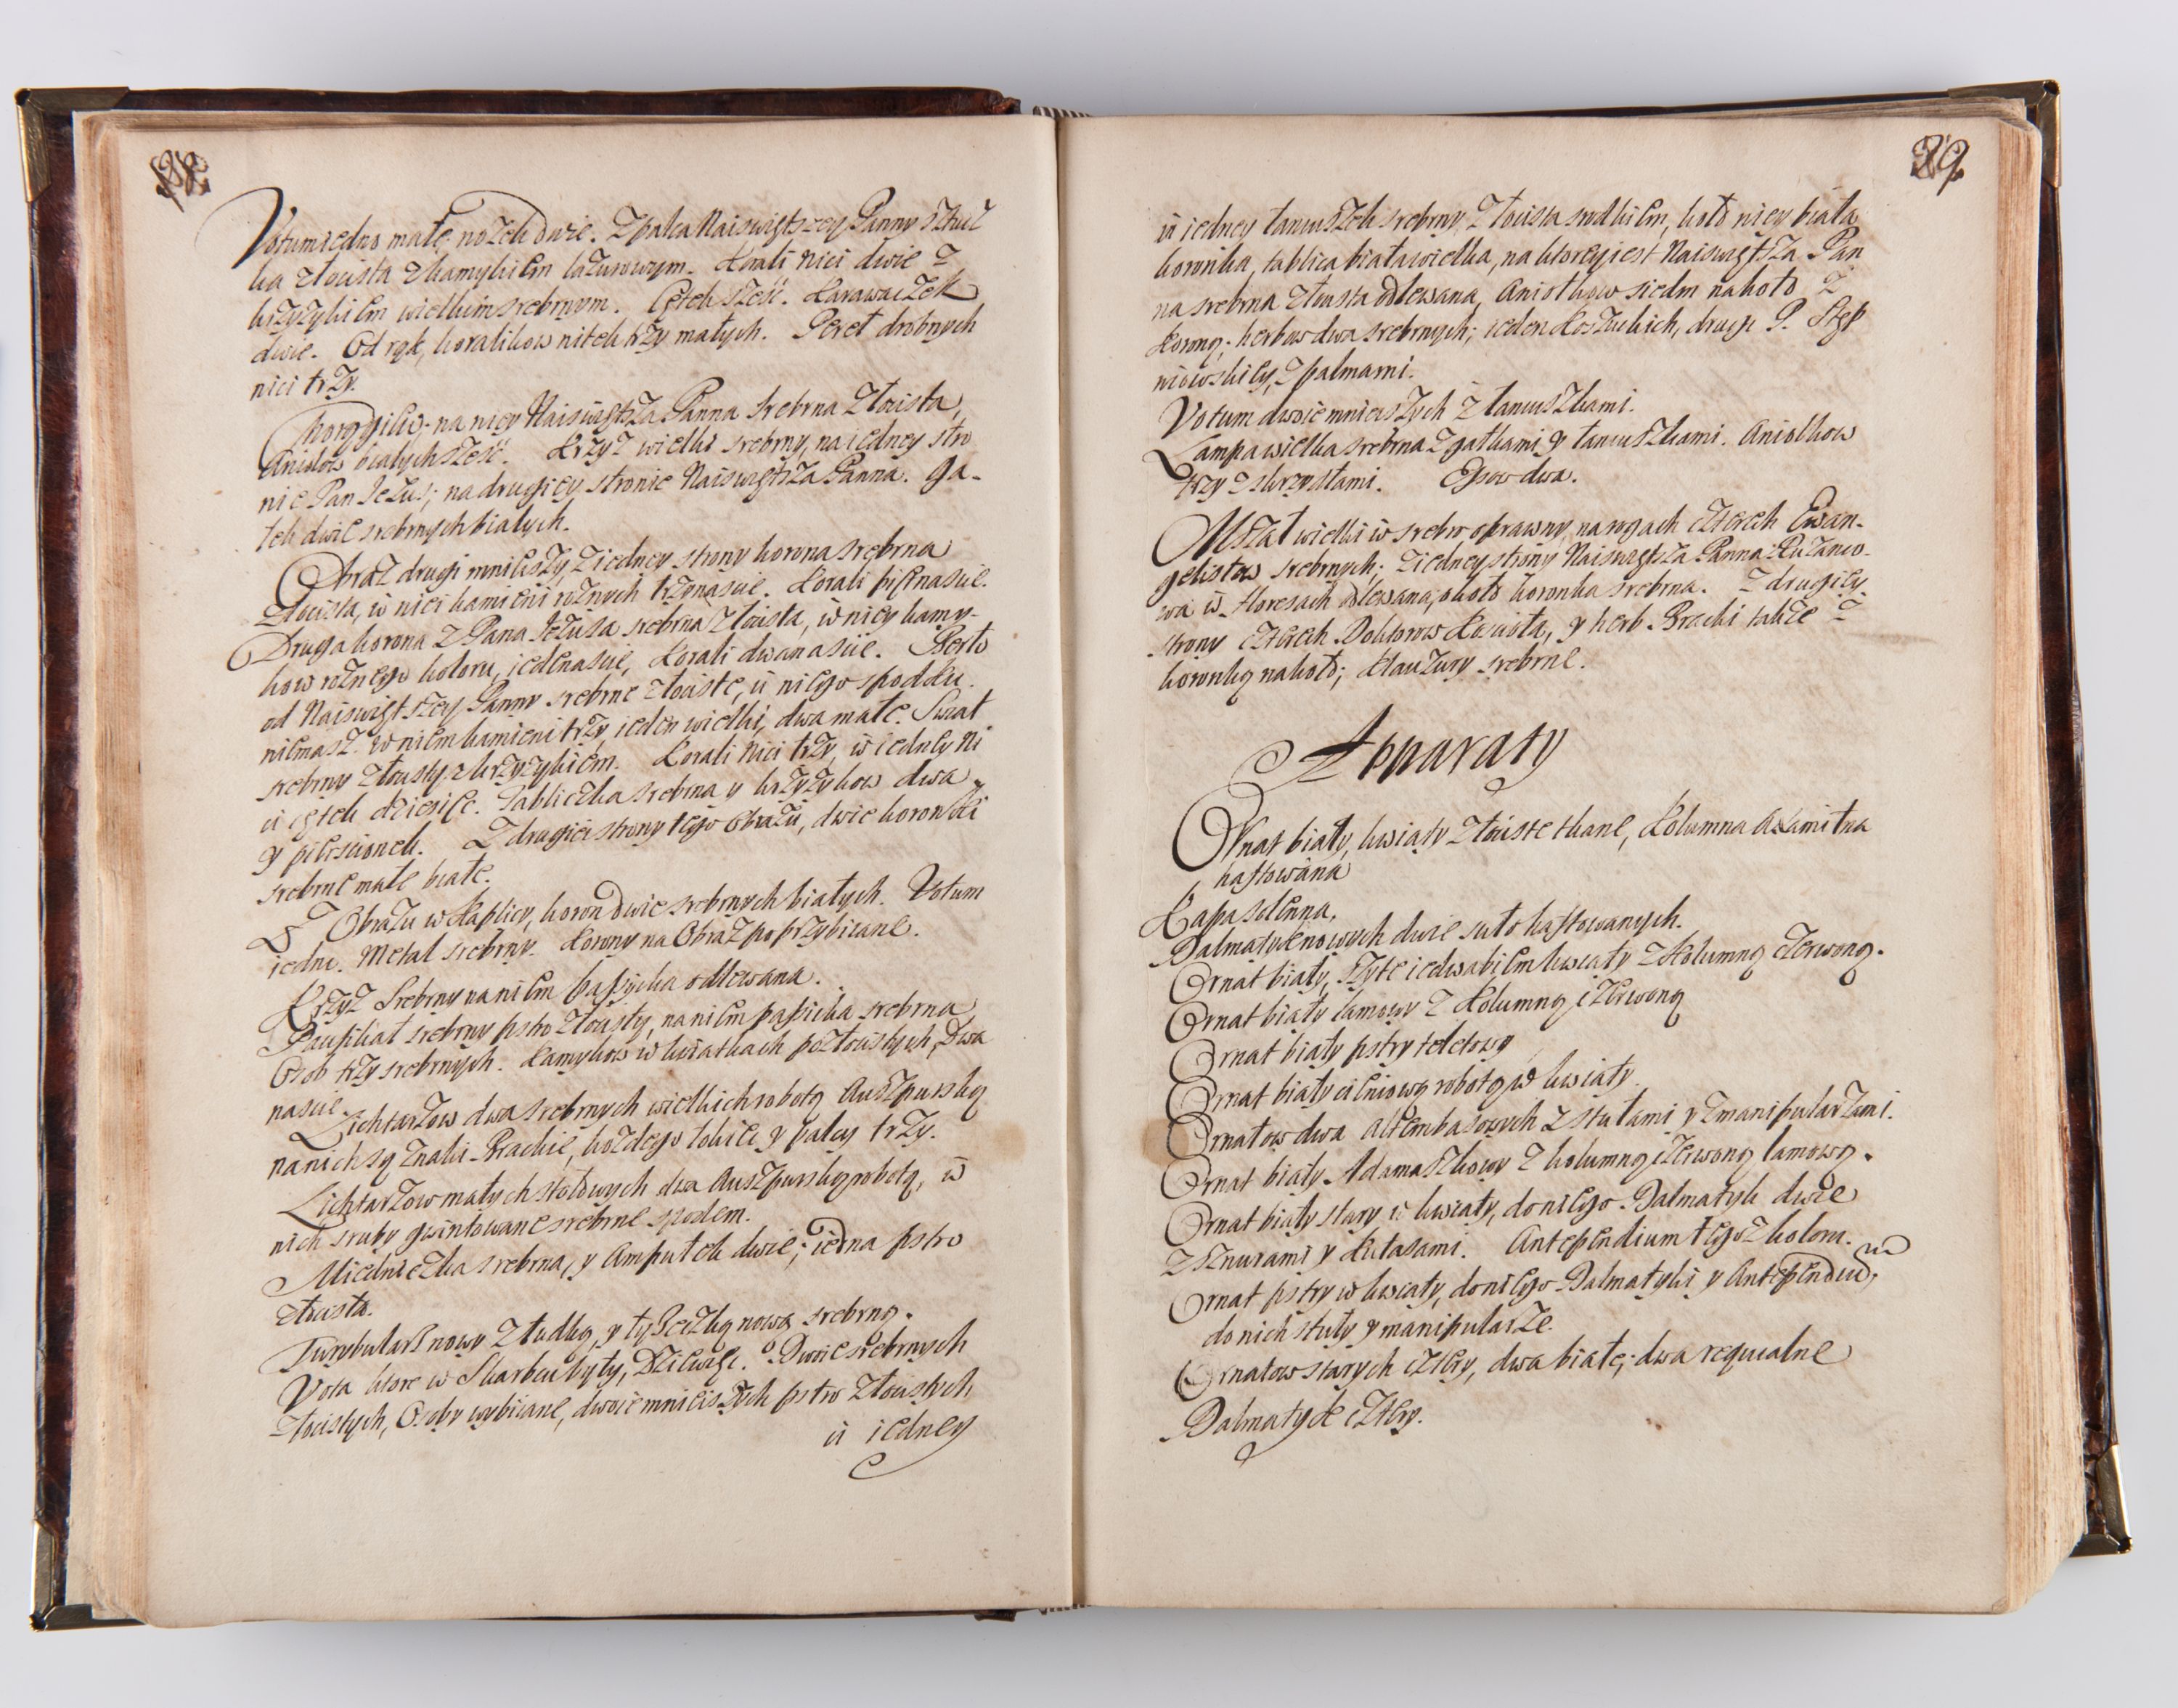 Votum iedno małe, nożek dwie. Z palca Naiswiętszey Panny sztuz
ka złocista z kamykiem lazurowym. Korali nici dwie z
krzyżykiem wielkim srebrnym. Cętek sześć. Karawaczek
dwie. Od rąk, koralikow nitek trzy małych. Pereł drobnych
nici trzy.
Chorągiew; na niey Naiswiętsza Panna srebrna złocista,
Aniołow białych sześć. Krzyż wielki srebrny, na iedney stro
nie Pan Iezus; na drugiey stronie Naiswiętsza Panna. Ga-
łek dwie srebrnych białych.
Obraz drugi mnieiszy, z iedney strony korona srebrna
złocista, w niey kamieni roznych trzynascie. Korali piętnascie.
Druga korona z Pana Iezusa srebrna złocista, w niey kamy-
kow roznego koloru, iedenascie, Korali dwanascie. Berło
od Naiswiętszey Panny srebrne złociste, u niego spodku
niemasz. W niem kamieni trzy, ieden wielki, dwa małe. Swiat
srebrny złocisty z krzyżykiem. Korali nici trzy, w iedney ni
ci cętek dziesięć. Tabliczka srebrna y krzyżykow dwa
y pierscionek. Z drugiei strony tego obrazu, dwie koronki
srebrne małe białe.
Z Obrazu w Kaplicy, koron dwie srebrnych białych. Votum
iedne. Metal srebrny. Korony na Obraz poprzybiiane.
Krzyż srebrny na niem passyika odlewana.
Pacyfikał srebrny pstro złocisty, na niem passiika srebrna
Osob trzy srebrnych. Kamykow w kwiatkach pozłocistych, dwa
nascie.
Lichtarzow dwa srebrnych wielkich robotą Auszpurską
na nich są znaki Brackie, kozdego łokiec y palcy trzy.
Lichtarzow małych stołowych dwa Auszpurską robotą, w
nich sruby gwintowane srebrne spodem.
Miedniczka srebrna, y Ampułek dwie; iedna pstro
złocista.
Turybularz nowy z łudką, y łyszeczką nową srebrną.
Vota ktore w Skarbcu były, Dziewięć. Dwoie srebrnych
złocistych, Osoby wybiiane, dwoie mnieiszych pstro złocistych,
u iedney
29
u iedney łancuszek srebrny, złocista sndkiem, koło niey biała
koronka, tablica biała wielka, na ktorey iest Naiswiętsza Pan
na srebrna złocista odlewana, Aniołkow siedm nakoło z
Koroną; herbow dwa srebrnych; ieden Koszuckich, drugi P. Stęp
niowskiey, z palmami.
Votum dwoie mnieiszych z łancuszkami.
Lampa wielka srebrna z gałkami y łancuszkami. Aniolkow
trzy z skrzydłami. Esow dwa.
Mszał wielki w srebro oprawny, na rogach czterech Ewan-
gelistow srebrnych; z iedney strony Naiswiętsza Panna Rużanco-
wa w floresach odlewana, około koronka srebrna. Z drugiey
strony czterech Doktorow Koscioła, y herb Bracki także z
koronką nakoło; klauzury srebrne.
Apparaty
Ornat biały, kwiaty złociste tkane, Kolumna axamitna
haftowana
Kapa solenna.
Dalmatyk nowych dwie suto haftowanych.
Ornat biały, szyte iedwabiem kwiaty z kolumną czerwoną.
Ornat biały lamowy z Kolumną czerwoną
Ornat biały pstry teletowy
Ornat biały cieniową robotą w kwiaty.
Ornatow dwa altembasowych z stułami y z manipularzami.
Ornat biały Adamaszkowy z kolumną czerwoną lamową.
Ornat biały stary w kwiaty, do niego Dalmatyk dwie
z sznurami y kutasami. Antependium tegoż koloru.
Ornat pstry w kwiaty, do niego Dalmatyki y Antependium,
do nich stuły y manipularze.
Ornatow starych cztery, dwa białe; dwa requialne
Dalmatyk cztery.